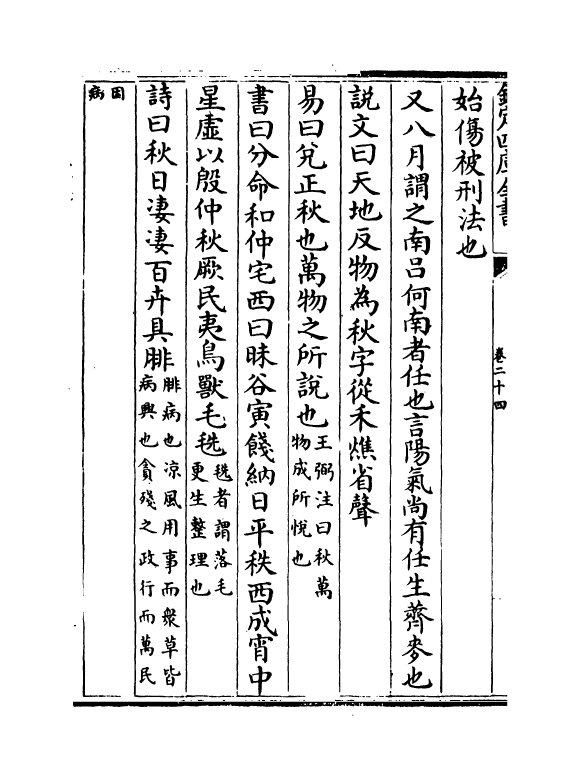 欽定四庫全書
卷二十四
始傷被刑法也
又八月謂之南呂何南者任也言陽氣尚有任生薺麥也
説文曰天地反物為秋字從禾燋省聲
易曰兌正秋也萬物之所説也王弼注曰秋萬物成所悅也
書曰分命和仲宅西曰昧谷寅餞納日平秩西成宵中
星虛以殷仲秋厥民夷鳥獸毛毨毨者謂落毛更生整理也
詩曰秋日凄凄百卉具腓腓病也涼風用事而衆草皆病興也貪殘之政行而萬民
困病